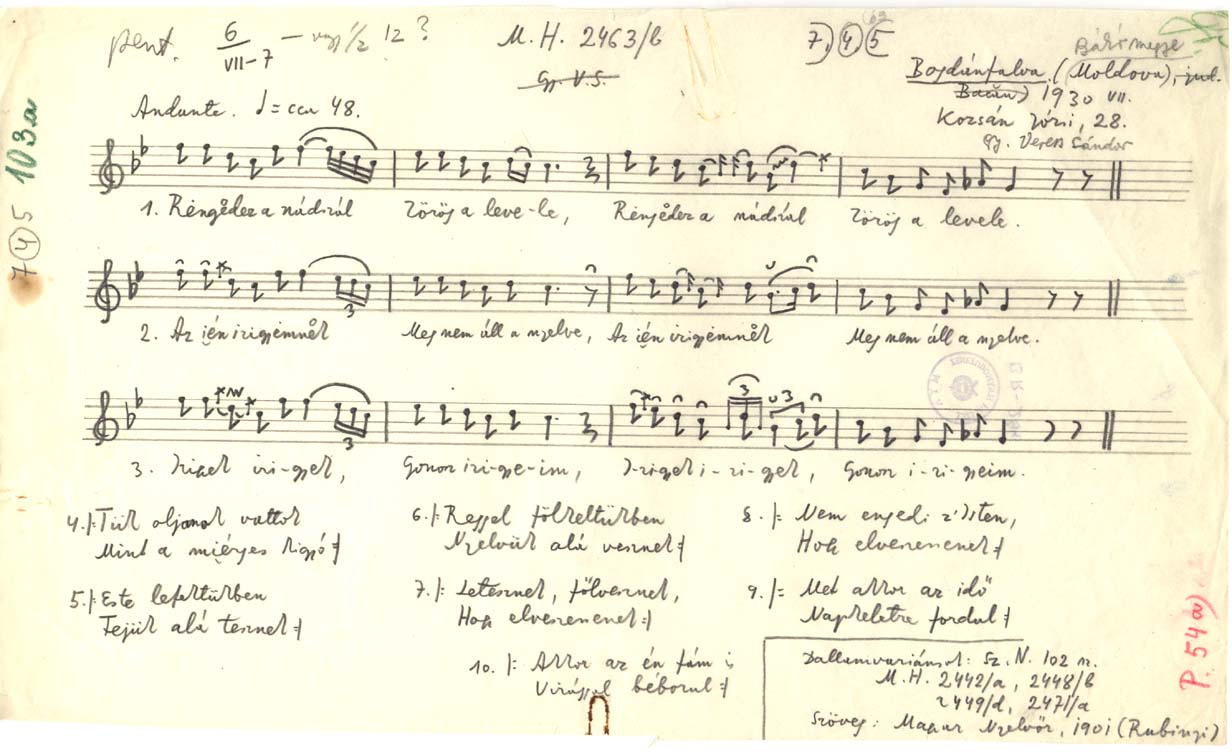 pent. 6/VII-7 – vagy 1/2 12 ?
M. H. 2463/b
Gy. V. S.
7, 4 5
63
Bákó megye
Bogdánfalva (Moldova), jud.
Bacău) 1930 VII.
Kozsán Józsi, 28.
Gy. Veress Sándor
103a
7 4 5
Andante. = cca 48.
1. Rengedez a nádszál Zörög a leve-le, Rengedez a nádszál Zörög a levele.
2. Az ién irigyëmnëk Meg nem áll a nyelve, Az ién irigyëmnëk Meg nem áll a nyelve.
3
3. Irigyek iri-gyek, Gonosz iri-gye-im, I-rigyek i-ri-gyek, Gonosz i-ri-gyeim.
3
3
3
4. /: Tük oljanok vattok
Mint a miérges kigyó :/
5. /: Este lefektükben
Fejük alá tesznek :/
6. /: Reggel fölkeltükben
Nyelvük alá vesznek :/
7. /: Letesznek, fölvesznek,
Hogy elvesszenenek :/
8. /: Nem engedi z'Isten,
Hogy elvesszenenek :/
9. /: Met akkor az idő
Napkeletre fordul :/
10. /: Akkor az én fám is
Virággal béborul :/
Dallamvariánsok: Sz. N. 102 sz.
M. H. 2442/a, 2448/b
2449/d, 2471/a
Szöveg: Magyar Nyelvőr, 1901 (Rubinyi)
P. 54 a)